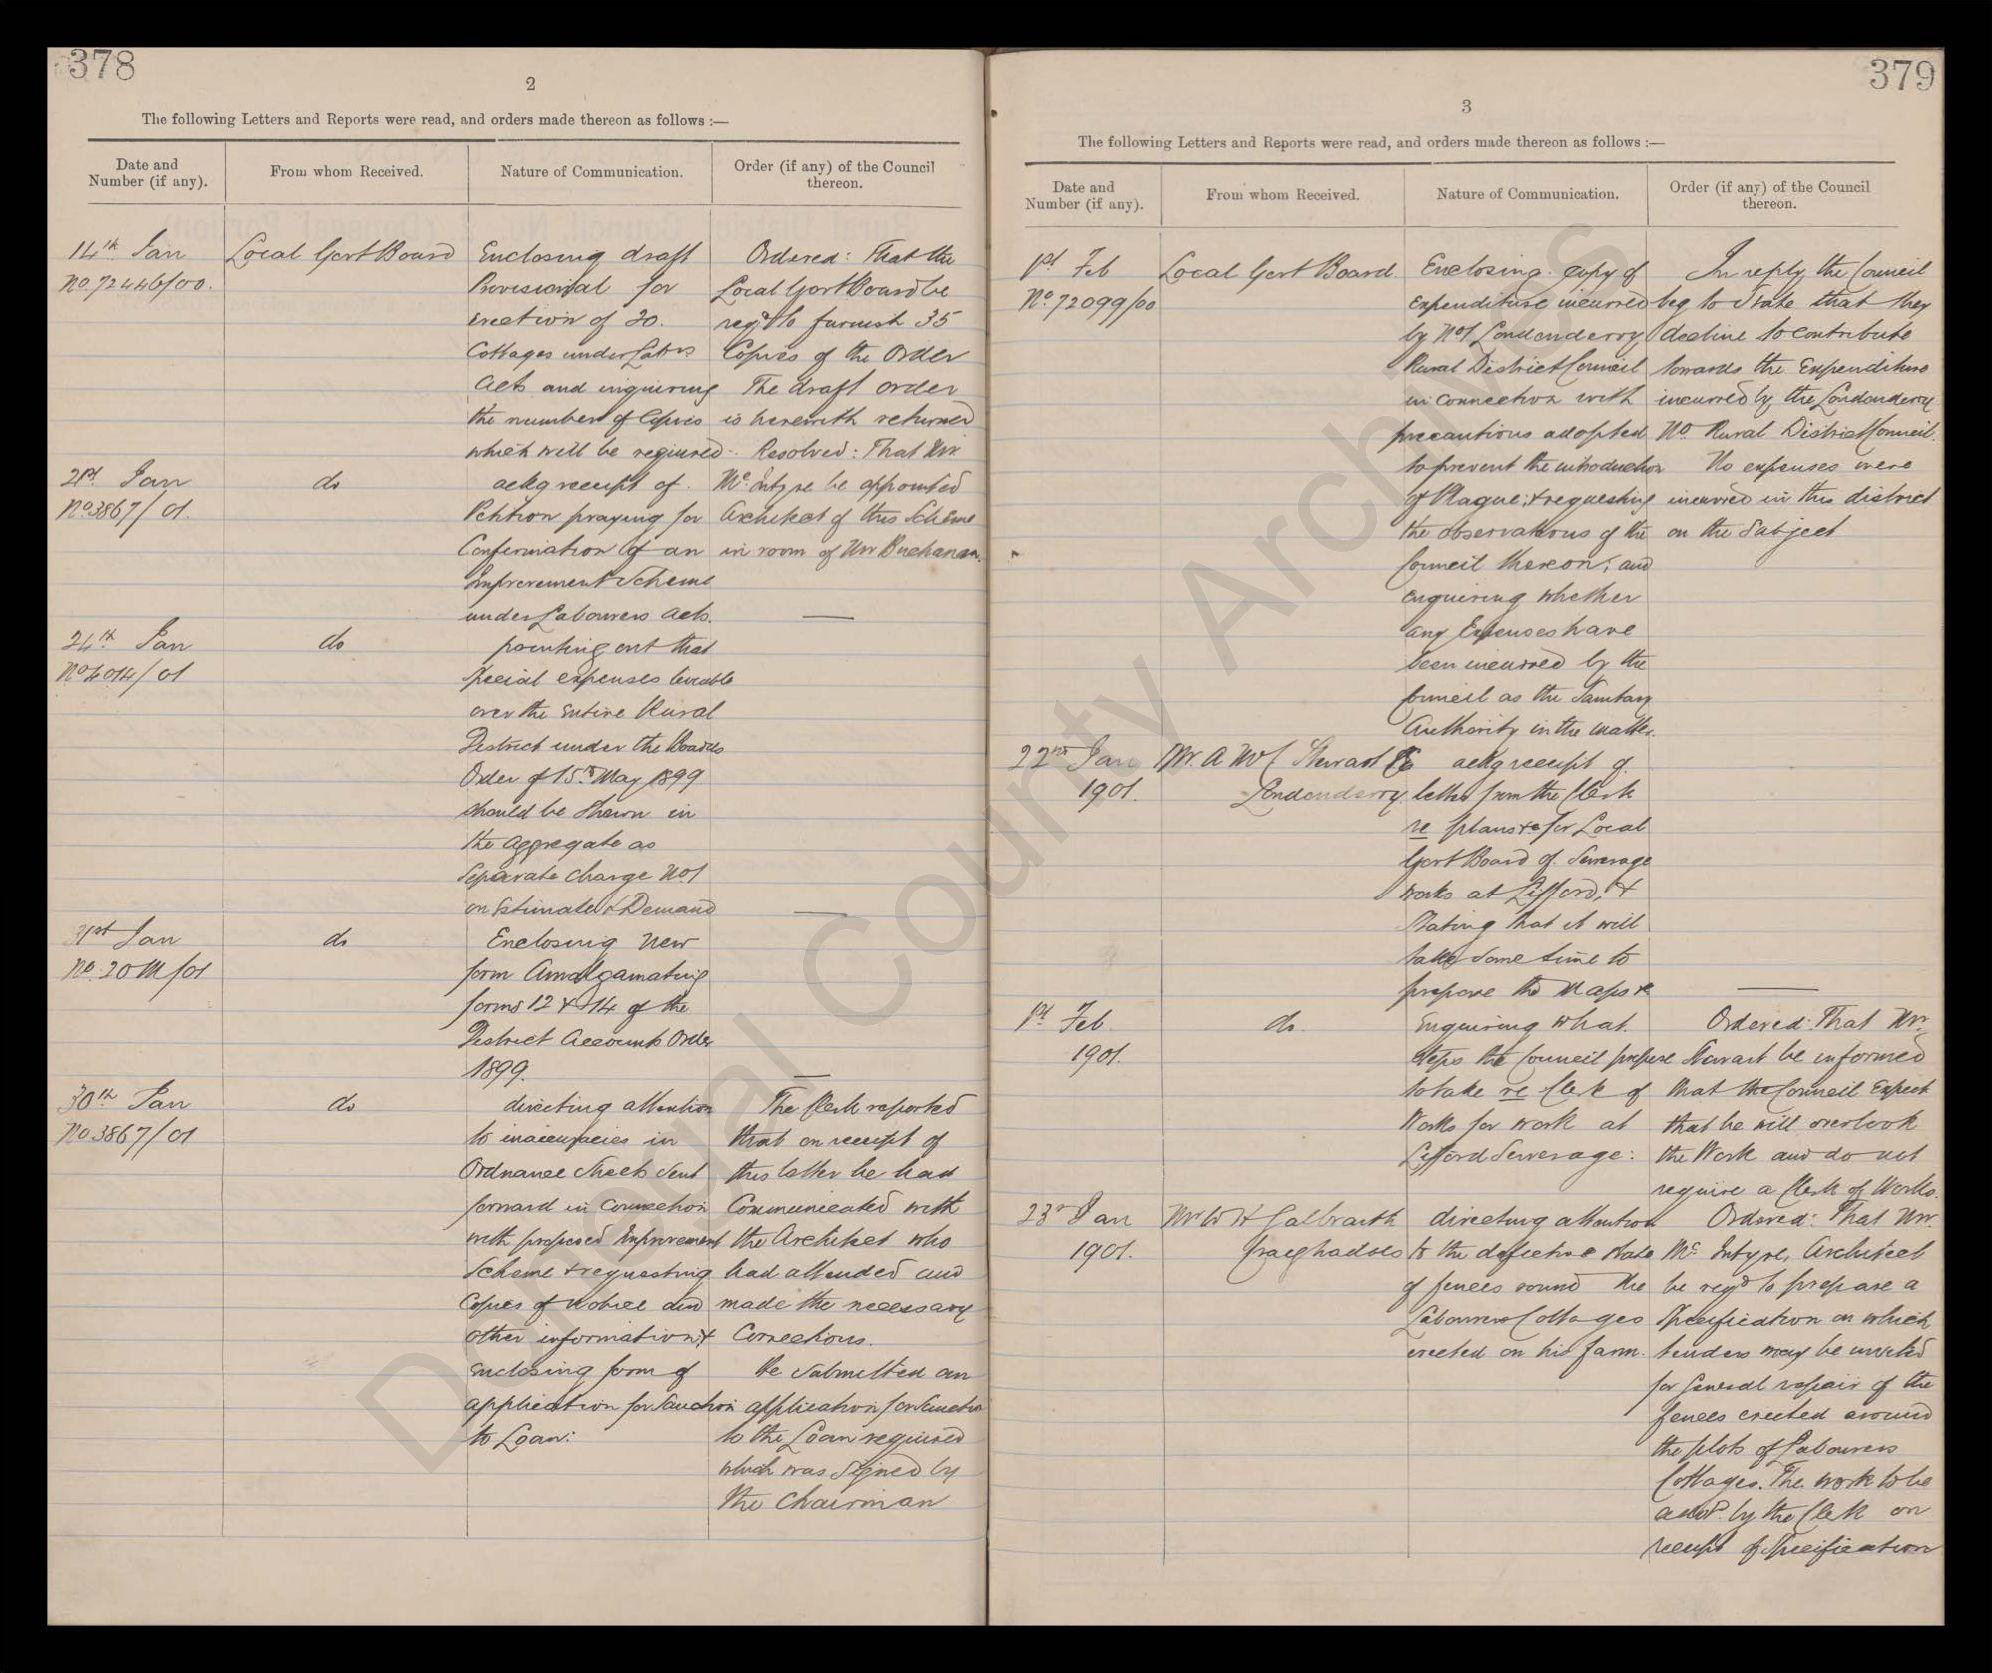 378
2
The following Letters and Reports were read, and orders made thereon as follows :—
Date and
Number (if any).
From whom Received.
Nature of Communication.
Order (if any) of the Council
thereon.
14th Jan
No 72446/00.
Local Govt Board
Enclosing draft
Provisional for
erection of 20.
Cottages under Labrs
Acts and inquiring
the number of Copies
which will be required
Ordered: That the
Local Govt Board be
reqd to furnish 35
Copies of the Order
The draft order
is herewith returned
Resolved: That Mr
McIntyre be appointed
Architect of this Scheme
in room of Mr Buchanan.
21st Jan
No 3867/01.
do
ackg receipt of
Petition praying for
Confirmation of an
Improvement Scheme
under Labourers Acts.
—
24th Jan
No 4014/01
do
pointing out that
Special expenses leviable
over the entire Rural
District under the Boards
Order of 15th May 1899
should be shewn in
the aggregate as
Separate charge No 1
on Estimate & Demand
—
31st Jan
No. 20M/01
do
Enclosing new
form Amalgamating
forms 12 & 14 of the
District Accounts Order
1899.
—
30th Jan
No 3867/01
do
directing attention
to inaccuracies in
Ordnance Sheets sent
forward in Connection
with proposed Improvement
Scheme & requesting
Copies of Notice and
other information &
enclosing form of
application for Sanction
to Loan:
The Clerk reported
that on receipt of
this letter he had
Communicated with
the Architect who
had attended and
made the necessary
Corrections.
He submitted an
application for Sanction
to the Loan required
which was signed by
the Chairman
379
3
The following Letters and Reports were read, and orders made thereon as follows :—
Date and
Number (if any).
From whom Received.
Nature of Communication.
Order (if any) of the Council
thereon.
1st Feb
No. 72099/00
Local Govt Board.
Enclosing copy of
expenditure incurred
by No 1 Londonderry
Rural District Council
in connection with
precautions adopted
to prevent the introduction
of Plague; & requesting
the observations of the
Council thereon; and
enquiring whether
any Expenses have
been incurred by the
Council as the Sanitary
Authority in the matter.
In reply, the Council
beg to state that they
decline to contribute
towards the Expenditure
incurred by the Londonderry
No. Rural District Council.
No expenses were
incurred in this district
on the Subject
22nd Jan
1901.
Mr. A McC Stewart CE
Londonderry
ackg receipt of
letter from the Clerk
re plans &c for Local
Govt Board of Sewerage
works at Lifford, &
stating that it will
take some time to
prepare the Maps &c
—
1st Feb.
1901.
do.
Enquiring what
steps the Council propose
to take re Clerk of
Works for work at
Lifford Sewerage:
Ordered: That Mr.
Stewart be informed
that the Council expect
that he will overlook
the Work and do not
require a Clerk of Works.
23rd Jan
1901.
Mr W H Galbraith
directing attention
to the defective state
of fences round the
Labourers Cottages
erected on his farm.
Ordered: That Mr.
McIntyre, Architect
be reqd to prepare a
Specification on which
tenders may be invited
for General repair of the
fences erected around
the plots of Labourers
Cottages. The work to be
advtd. by the Clerk on
receipt of Specification
Donegal County Archives